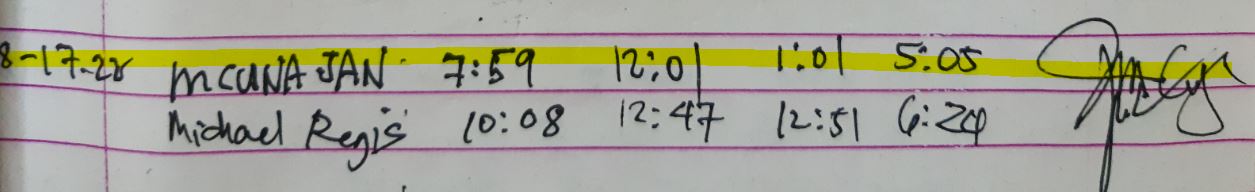 8-17-22 MCUNA JAN 7:59 12:01 1:01 5:05
Michael Regis 10:08 12:47 12:51 6:24